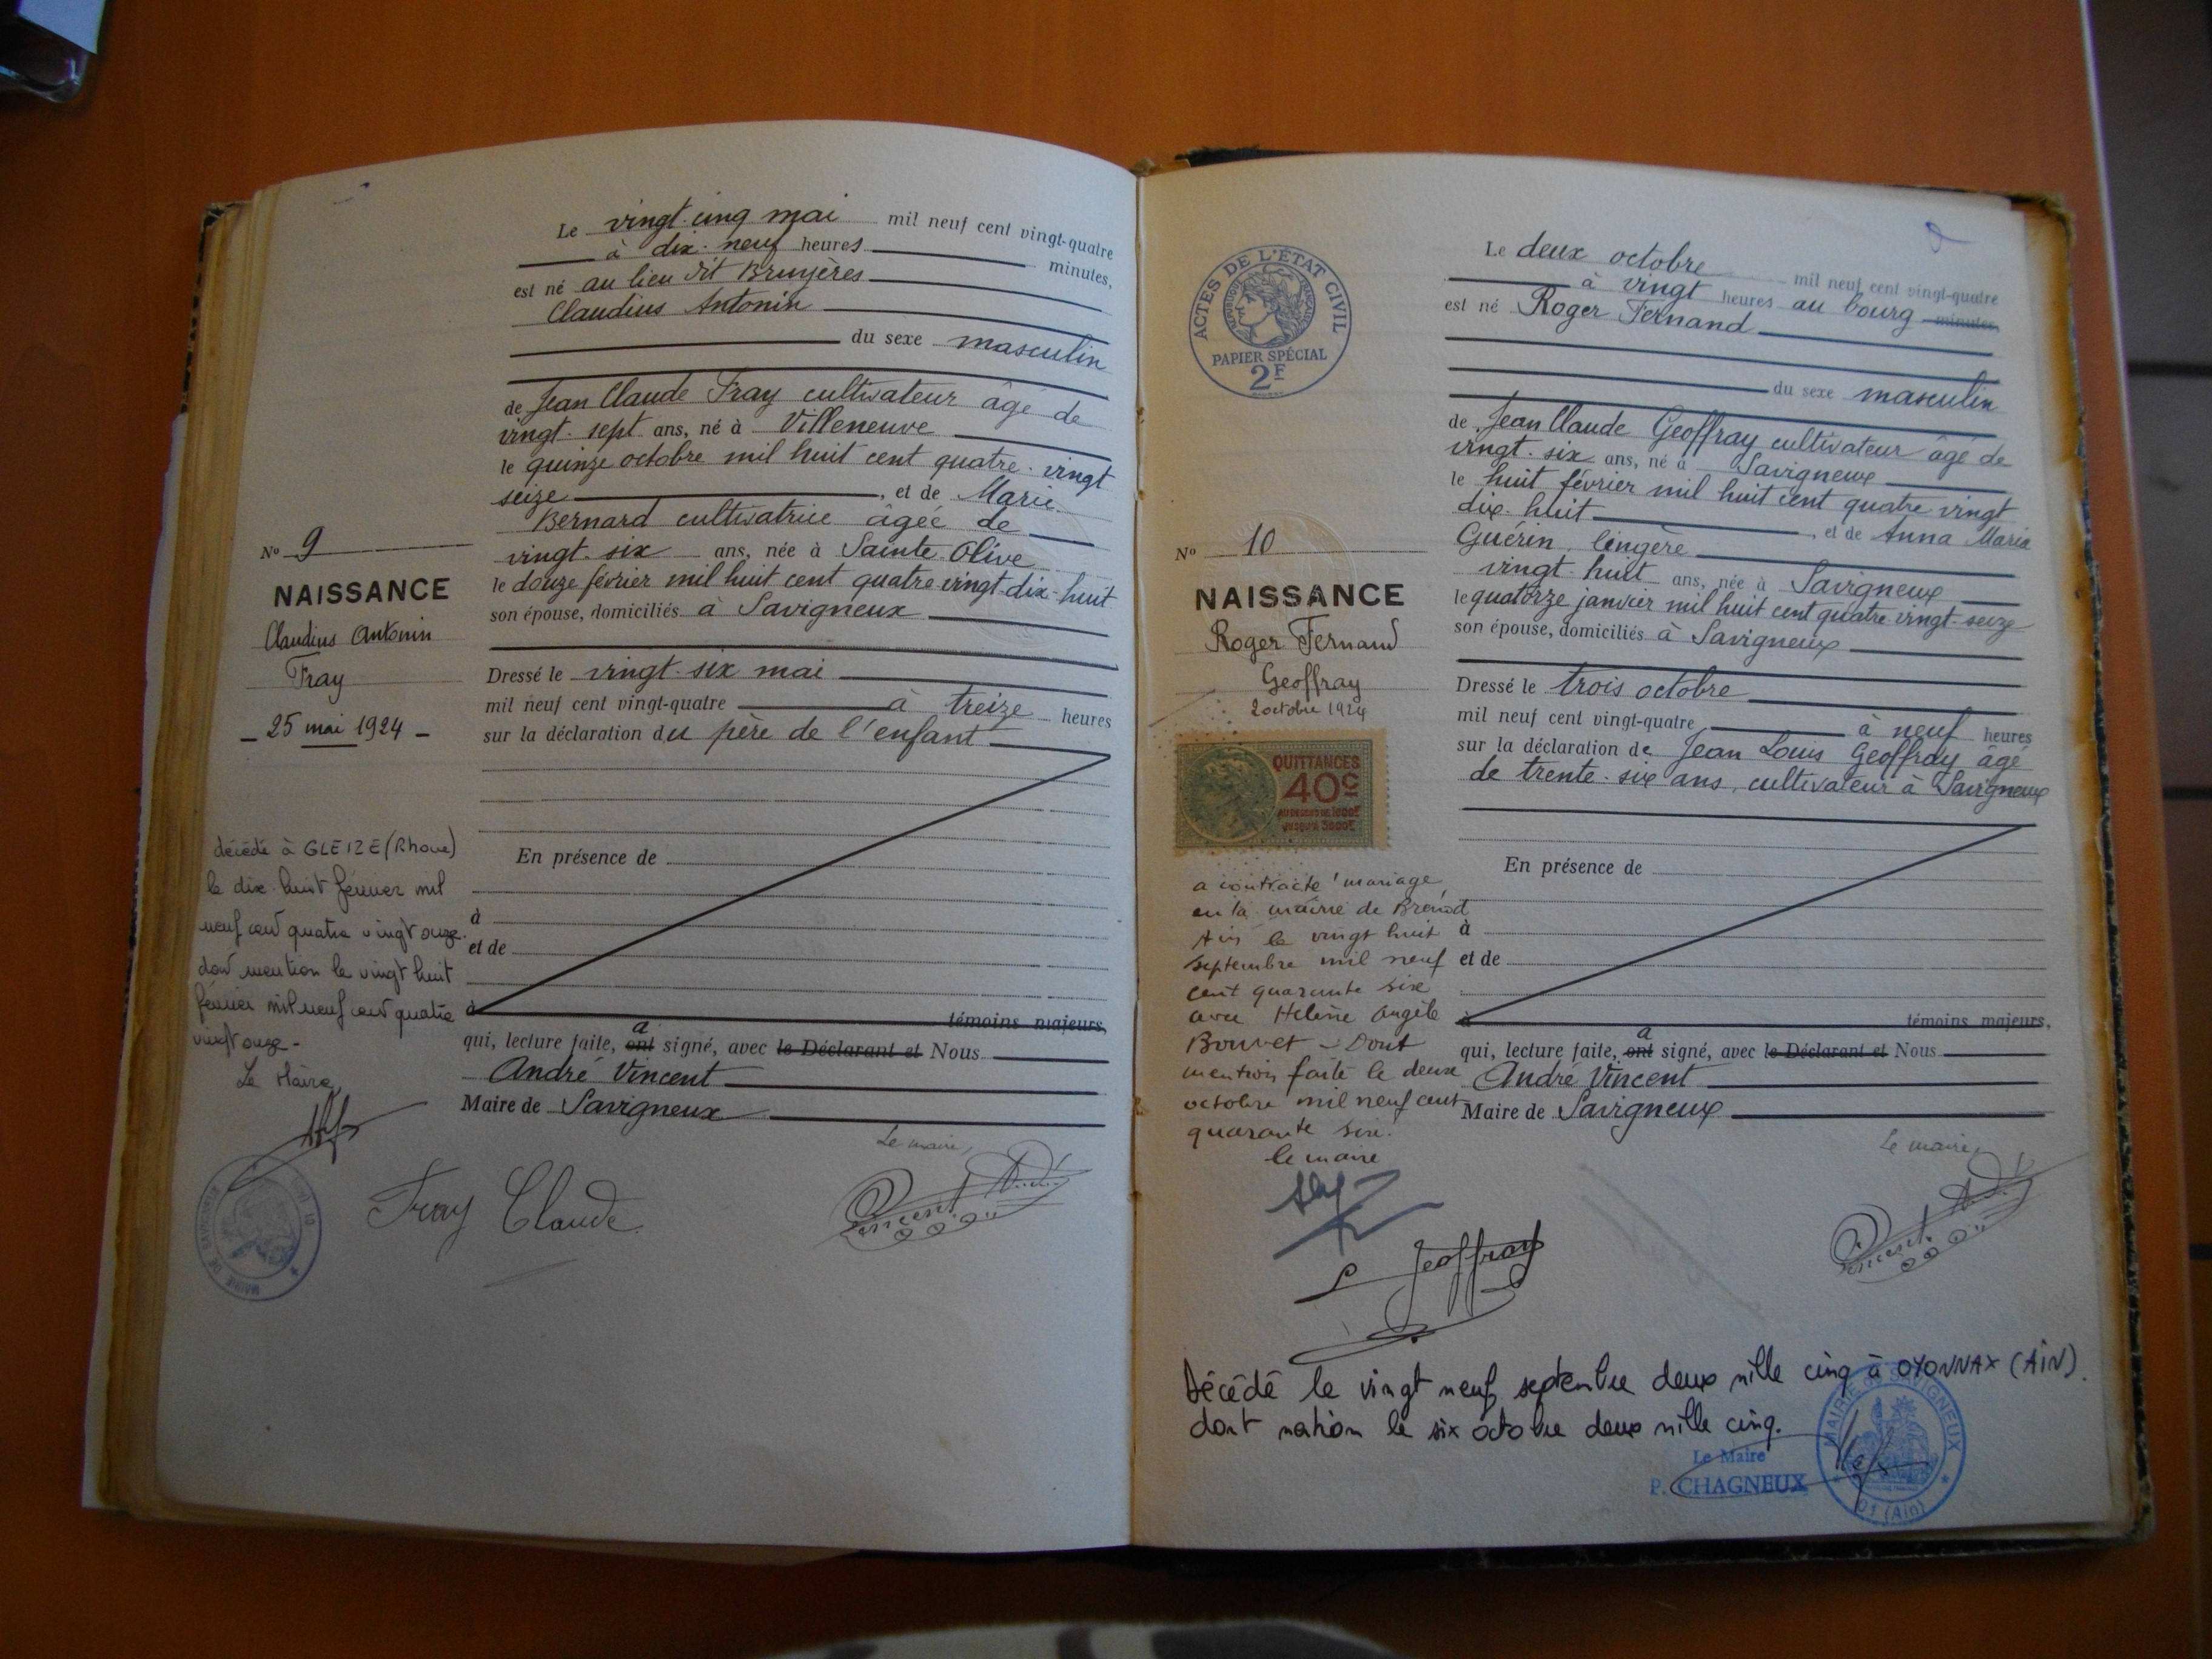 Le vingt-cinq mai mil neuf cent vingt-quatre
à dix-neuf heures minutes,
est né au lieu dit Bruyères
Claudius Antonin
du sexe masculin
de Jean Claude Fray cultivateur âgé de
vingt-sept ans, né à Villeneuve
le quinze octobre mil huit cent quatre-vingt
seize, et de Marie
Bernard cultivatrice âgée de
vingt-six ans, née à Sainte Olive
le douze février mil huit cent quatre vingt-dix-huit
son épouse, domiciliés à Savigneux
Dressé le vingt-six mai
mil neuf cent vingt-quatre à treize heures
sur la déclaration du père de l'enfant
En présence de
à
et de
à témoins majeurs,
qui, lecture faite, ont a signé, avec le Déclarant et Nous
André Vincent
Maire de Savigneux
Le maire,
Fray Claude
Vincent
Nº 9
NAISSANCE
Claudius Antonin
Fray
25 mai 1924
décédé à GLEIZE (Rhone)
le dix huit février mil
neuf cent quatre vingt onze.
dont mention le vingt huit
février mil neuf cent quatre
vingt onze.
Le Maire,
MAIRIE DE SAVIGNEUX
ACTES DE L'ÉTAT CIVIL
PAPIER SPÉCIAL
2F
Le deux octobre mil neuf cent vingt-quatre
à vingt heures au bourg minutes,
est né Roger Fernand
du sexe masculin
de Jean Claude Geoffray cultivateur âgé de
vingt-six ans, né à Savigneux
le huit février mil huit cent quatre vingt
dix-huit, et de Anna Maria
Guérin, lingère
vingt-huit ans, née à Savigneux
le quatorze janvier mil huit cent quatre vingt-seize
son épouse, domiciliés à Savigneux
Dressé le trois octobre
mil neuf cent vingt-quatre, à neuf heures
sur la déclaration de Jean Louis Geoffray âgé
de trente-six ans, cultivateur à Savigneux
En présence de
à
et de
à témoins majeurs,
qui, lecture faite, ont a signé, avec le Déclarant et Nous
André Vincent
Maire de Savigneux
Le maire,
Vincent
Nº 10
NAISSANCE
Roger Fernand
Geoffray
2 octobre 1924
QUITTANCES
40c
a contracté mariage
en la mairie de Brenod
Ain le vingt huit
septembre mil neuf
cent quarante six
avec Hélène Angèle
Bouvet - Dont
mention faite le deux
octobre mil neuf cent
quarante six.
le maire
Geoffray
Décédé le vingt neuf septembre deux mille cinq à OYONNAX (AIN).
dont mention le six octobre deux mille cinq.
Le Maire
P. CHAGNEUX
MAIRIE de SAVIGNEUX
01 (Ain)